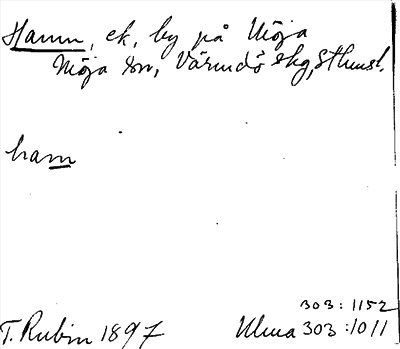 Hamn, ek, by på Möja
Möja sn, Värmdö skg, Sthmsl.
ham
303:1152
T. Rubin 1897 Ulma 303:1011